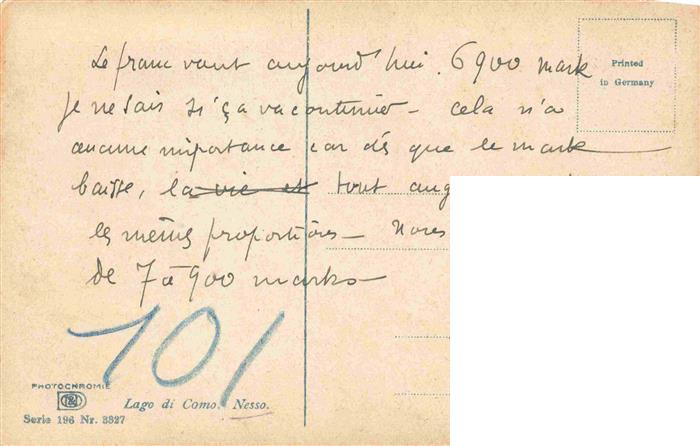 Le franc vaut aujourd'hui. 6900 mark
je ne sais si ça va continuer - cela n'a
aucune importance car dés que le mark
baisse, la vie et tout aug
les mêmes proportions -
de 7 à 900 marks -
101
Printed
in Germany
PHOTOCHROMIE
Lago di Como. Nesso.
Serie 196 Nr. 3327